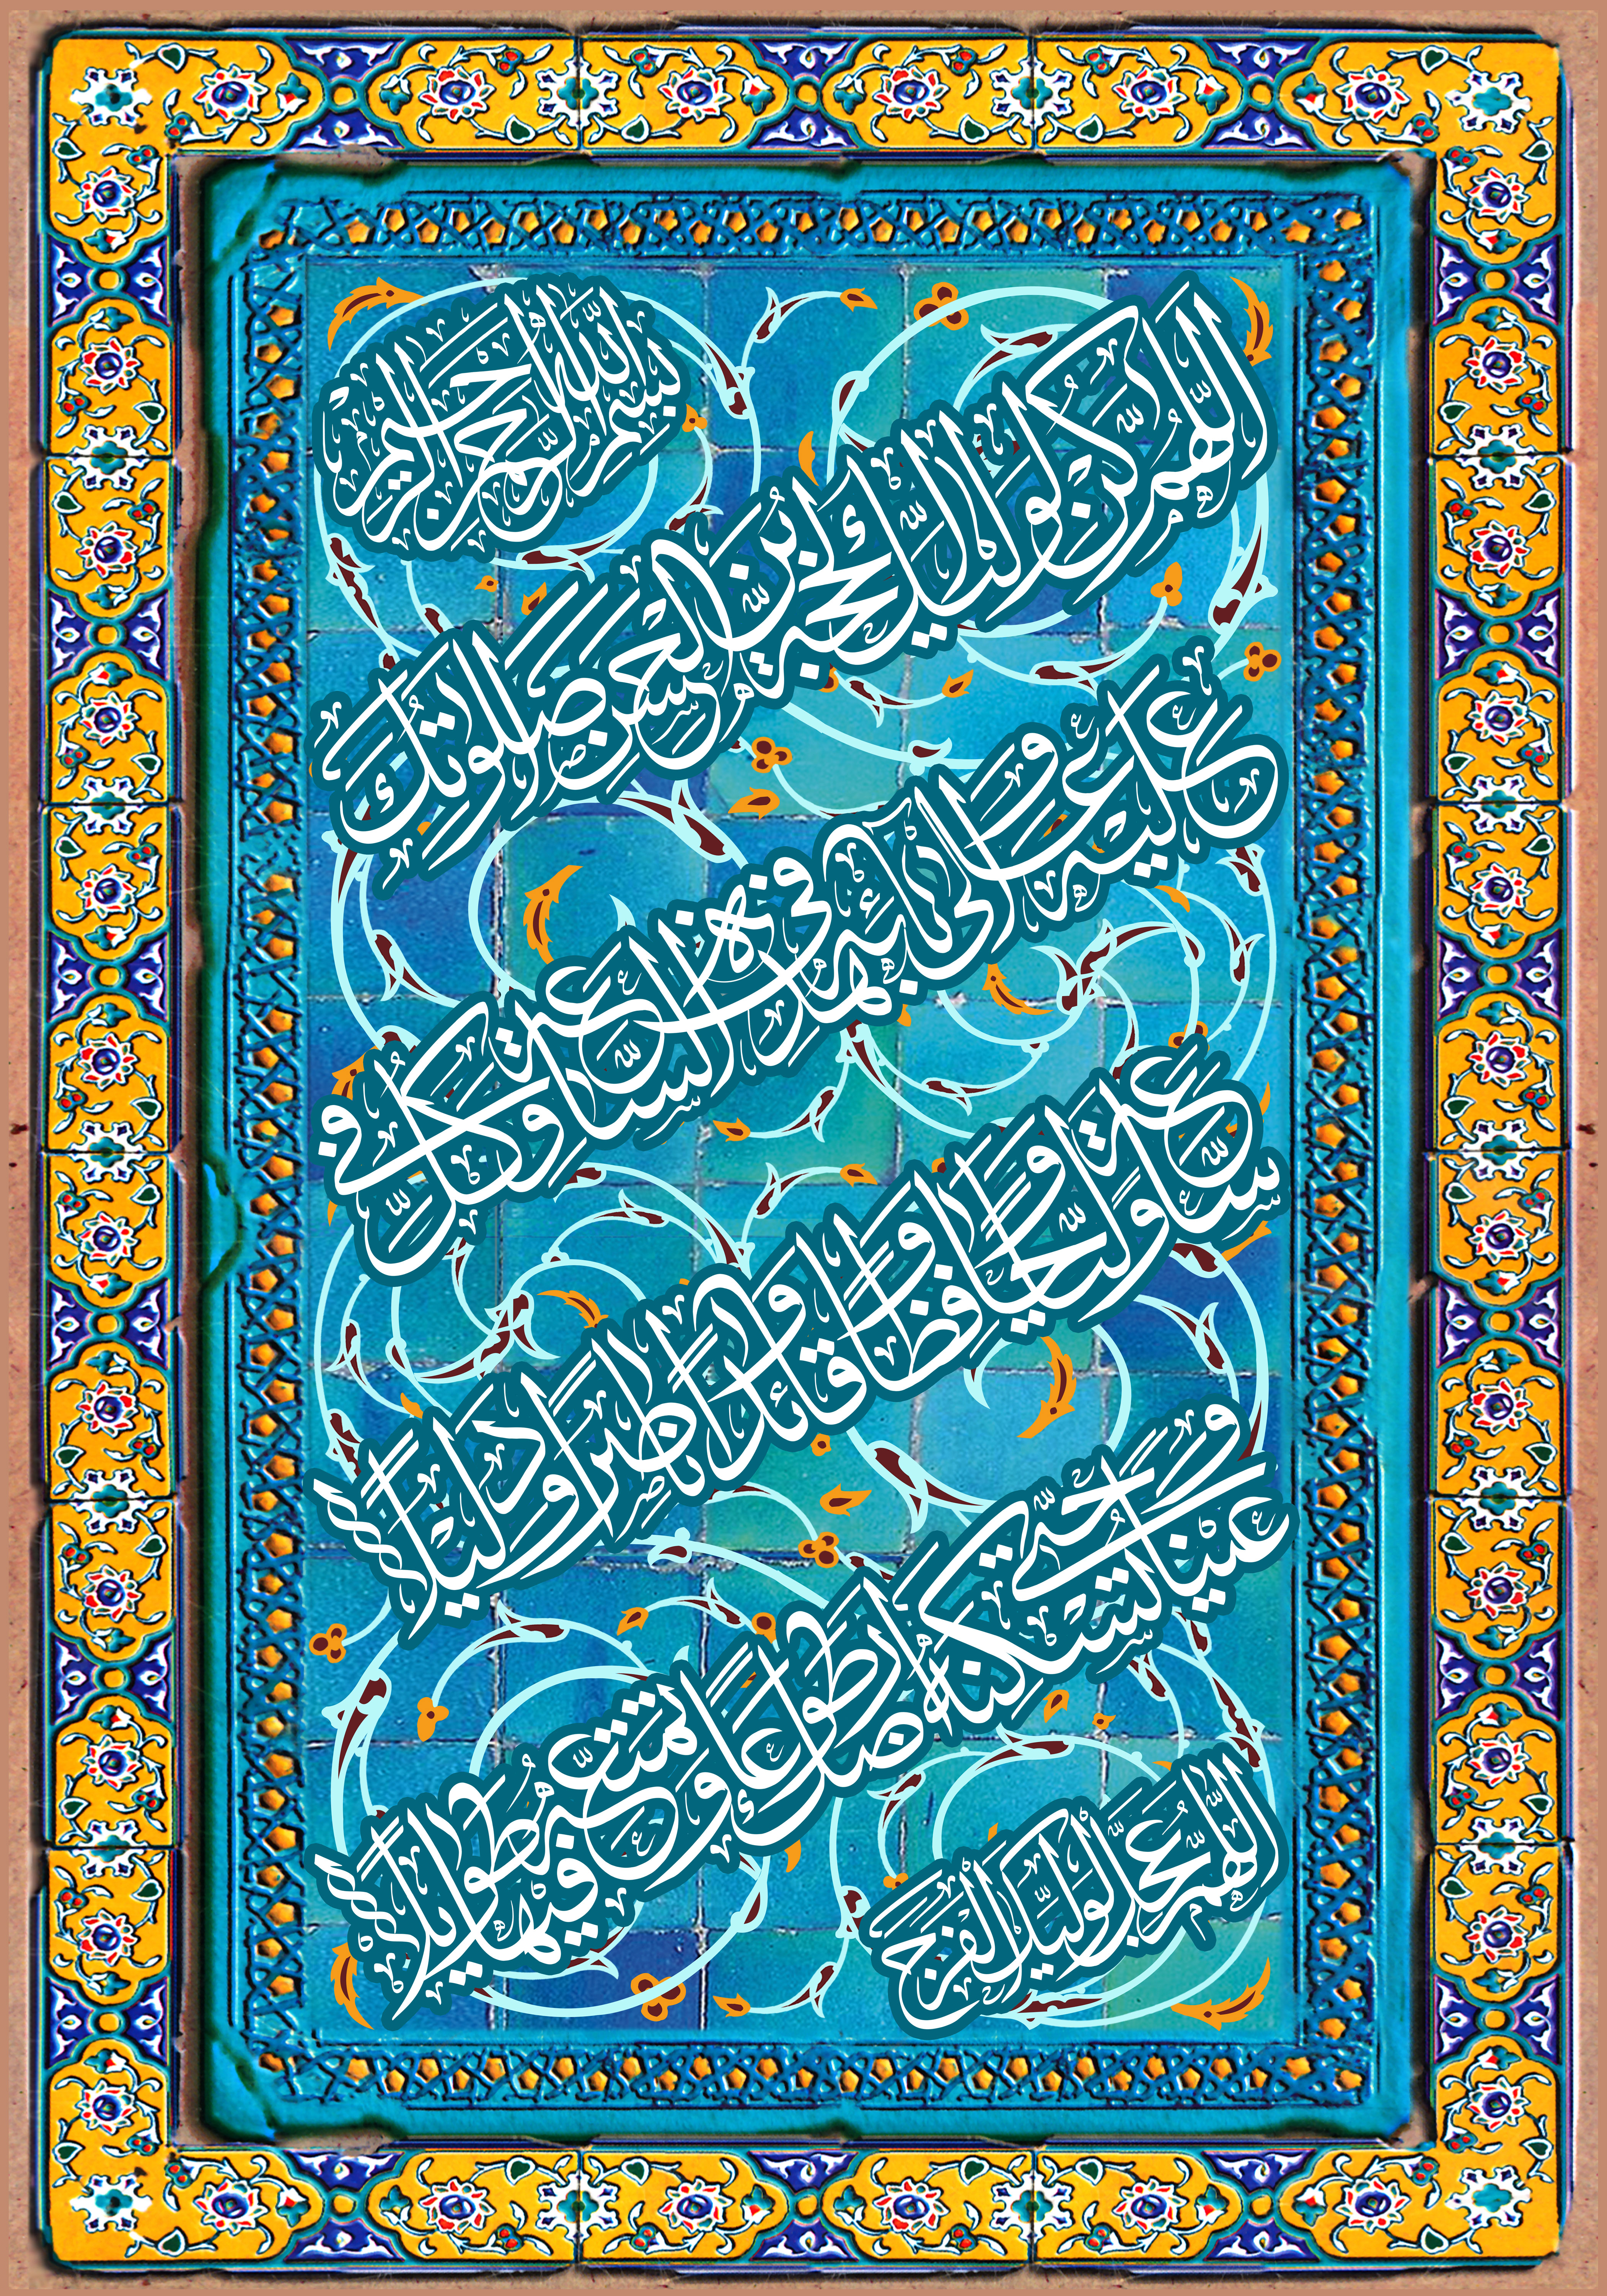 بسم الله الرحمن الرحيم
اللهم كن لوليك الحجة بن الحسن صلواتك
عليه وعلى آبائه في هذه الساعة وفي كل
ساعة وليا وحافظا وقائدا وناصرا ودليلا
وعينا حتى تسكنه أرضك طوعا وتمتعه فيها طويلا
اللهم عجل لوليك الفرج